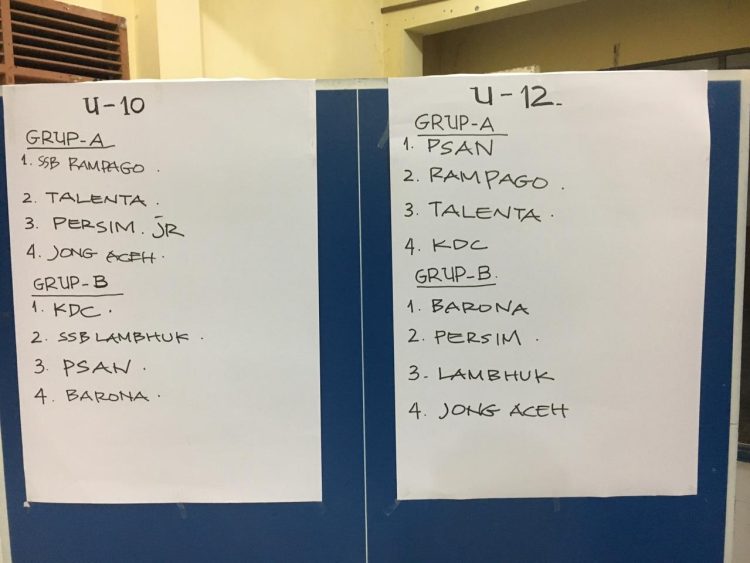 U-10
GRUP-A
1. SSB RAMPAGO.
2. TALENTA.
3. PERSIM. JR
4. JONG ACEH.
GRUP-B
1. KDC.
2. SSB LAMBHUK.
3. PSAN.
4. BARONA.
U-12.
GRUP-A
1. PSAN
2. RAMPAGO.
3. TALENTA.
4. KDC
GRUP-B.
1. BARONA
2. PERSIM.
3. LAMBHUK
4. JONG ACEH